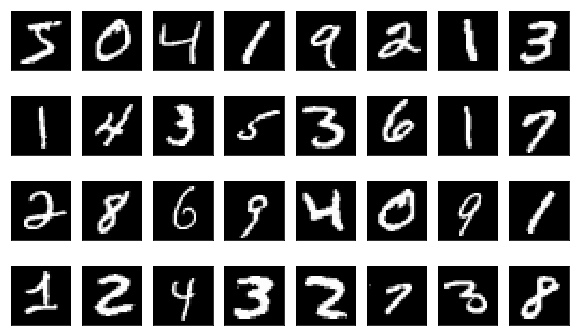 5 0 4 1 9 2 1 3
1 4 3 5 3 6 1 7
2 8 6 9 4 0 9 1
1 2 4 3 2 7 3 8